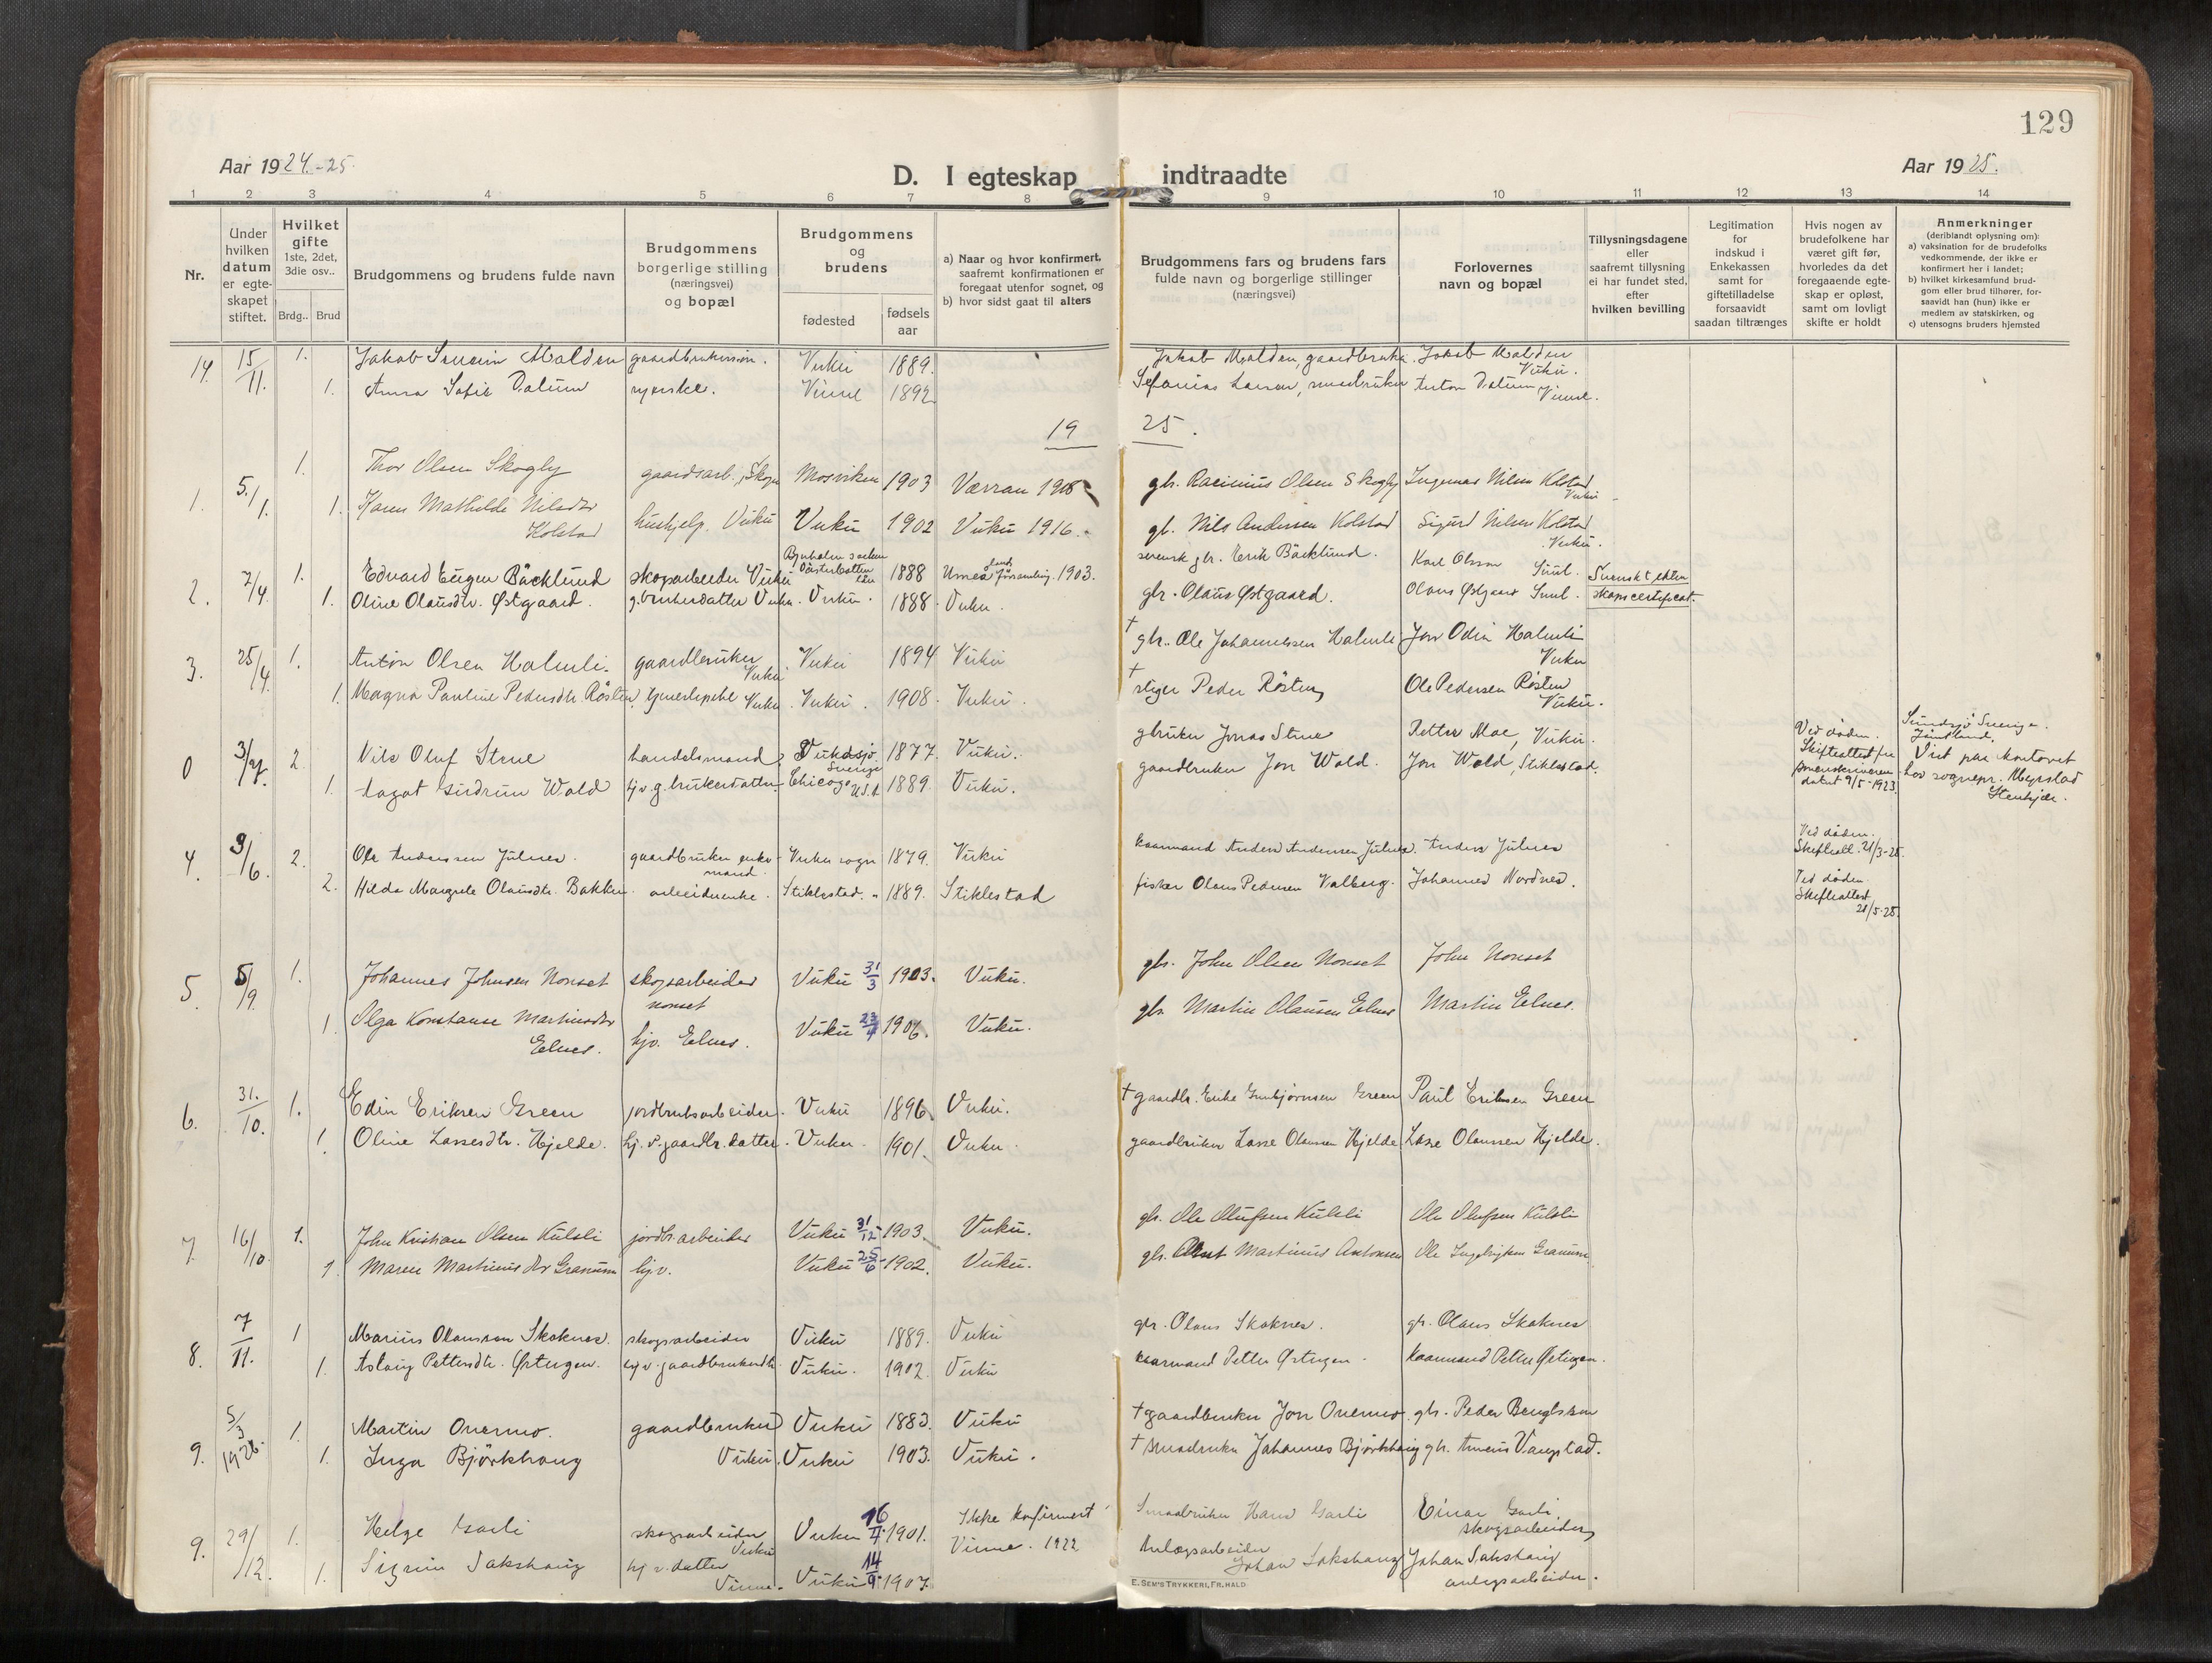 129
Aar 1924.-25.
D. I egteskap indtraadte
Aar 1925.
1 2 3 4 5 6 7 8 9 10 11 12 13 14
Nr.
Under hvilken datum er egte-skapet stiftet.
Hvilket gifte 1ste, 2det, 3die osv..
Brdg.. Brud
Brudgommens og brudens fulde navn
Brudgommens borgerlige stilling (næringsvei) og bopæl
Brudgommens og brudens
fødested
fødsels aar
a) Naar og hvor konfirmert, saafremt konfirmationen er foregaat utenfor sognet, og
b) hvor sidst gaat til alters
Brudgommens fars og brudens fars fulde navn og borgerlige stillinger (næringsvei)
Forlovernes navn og bopæl
Tillysningsdagene eller saafremt tillysning ei har fundet sted, efter hvilken bevilling
Legitimation for indskud i Enkekassen samt for giftetilladelse forsaavidt saadan tiltrænges
Hvis nogen av brudefolkene har været gift før, hvorledes da det foregaaende egte-skap er opløst, samt om lovligt skifte er holdt
Anmerkninger (deriblandt oplysning om):
a) vaksination for de brudefolks vedkommende, der ikke er konfirmert her i landet;
b) hvilket kirkesamfund brud-gom eller brud tilhører, for-saavidt han (hun) ikke er medlem av statskirken, og
c) utensogns bruders hjemsted
14. 15/11. 1. Jakob Malden gaardbrukersøn. Vuku 1889. Jakob Malden, gaardbruker Jakob Malden Vuku.
1. Anna Sofie Dalum syerske. Vinne 1892. Sefanias Larsen, smaabruker Anton Dalum Vinne.
19 25.
1. 5./1. 1. Thor Olsen Skogly gaardsarb., Skogn Mosviken 1903 Værran gbr. Olsen Skogly Ingemar Nilsen Kolstad Vuku
1. Karen Mathilde Nilsdtr Kolstad hushjelp. Vuku Vuku 1902 Vuku 1916. gb. Nils Andersen Kolstad Sigurd Nilsen Kolstad Vuku.
2. 7/4. 1. Edvard Eugen Bäcklund skogsarbeider Vuku Österbotten 1888 Umeå lands församling. 1903. svensk gbr. Erik Bäcklund. Karl Olsson Suul. Svenskt ekten
1. Oline Olausdtr. Østgaard. g.brukerdatter Vuku. Vuku. 1888. Vuku. gbr. Olaus Østgaard. Olaus Østgaard Suul. skapscertificat.
3. 25/4. 1. Anton Olsen Halmli. gaardbruker Vuku Vuku 1894 Vuku † gbr. Ole Johannessen Halmli Jon Odin Halmli Vuku
1. Magna Pauline Pedersdtr. Røsten Vuku Vuku. 1908. Vuku. † stiger Peder Røsten, Ole Pedersen Røsten Vuku.
0 2. Nils Oluf Strue handelsmand Sverige 1877. Vuku. gbruker Jonas Strue Petter Moe, Vuku. Ved døden. Skifteattest fra datert 9/5-1923. Sundsjö Sverige. Jämtland. Viet paa kontoret hos sognepr. Myrstad Stenkjær.
1. Aagot Gudrun Wold hj.v. g.brukerdatter Chicago U.S.A. 1889. Vuku. gaardbruker Jon Wold. Jon Wold, Stiklestad.
4. 3/6. 2. Ole Anderssen Julnes. gaardbruker enke-mand. Vuku sogn 1879. Vuku kaarmand Anders Andersen Julnes. Anders Julnes Ved døden. Skifteatt. 21/3-25.
2. Hilda Margrete Olausdtr. Bakken. arbeiderenke. Stiklestad. 1889. Stiklestad fisker Olaus Pedersen Valberg. Johannes Nordnes. Ved døden Skifteattest 28/5-25.
5. 5/9. 1. Johannes Johnsen Nonset skogsarbeider nonset Vuku 31/3 1903. Vuku. gbr. John Olsen Nonset John Nonset
1. Olga Konstanse Martinsdtr Eelnes. hjv. Eelnes. Vuku 23/4 1906. Vuku. gbr. Martin Olausen Eelnes Martin Eelnes.
6. 31./10. 1. Edin Eriksen Green jordbruksarbeider. Vuku 1896. Vuku. † gaardbr. Erik Gunbjørnsen Green Paul Eriksen Green
1. Oline Lassesdtr. Hjelde. hj. v. gaardbr. datter. Vuku. 1901. Vuku. gaardbruker Lasse Olaussen Hjelde Lasse Olaussen Hjelde.
7. 16/10. 1. John Kristian Olsen Kulsli jordbr.arbeider Vuku 31/12 1903. Vuku. gb. Ole Olufsen Kulsli Ole Olufsen Kulsli
1. Maren Martinusdtr Granum hj.v. Vuku 25/6 1902. Vuku. gbr. Martinus Antonsen Ole Ingebrigtsen Granum
8. 7/11. 1 Marius Olaussen Skoknes. skogsarbeider Vuku 1889. Vuku gbr. Olaus Skoknes. gb. Olaus Skoknes
1. Aslaug Pettersdtr. Østugen. hj.v. gaardbrukerdtr. Vuku. 1902. Vuku kaarmand Petter Østugen. kaarmand Petter Østugen.
9. 5/3 1926. 1. Martin Overmo. gaardbruker Vuku 1883. Vuku † gaardbruker Jon Overmo. gb. Peder Bengtsson
1. Inga Björkhaug Vuku. Vuku 1903. Vuku. † smaabruker Johannes Björkhaug gb. Vangstad.
9. 29/12. 1. Helge Garli skogsarbeider Vuku Vuku 1901. Ikke konfirmert Smaabruker Hans Garli Einar Garli, skogsarbeider,
1. Sigrun Sakshaug hj.v. datter Vinne. Vuku 14/9 1907. Vinne. 1922 Anlægsarbeider Johan Sakshaug Johan Sakshaug anlegsarbeider.
E. SEM'S TRYKKERI, FR.HALD